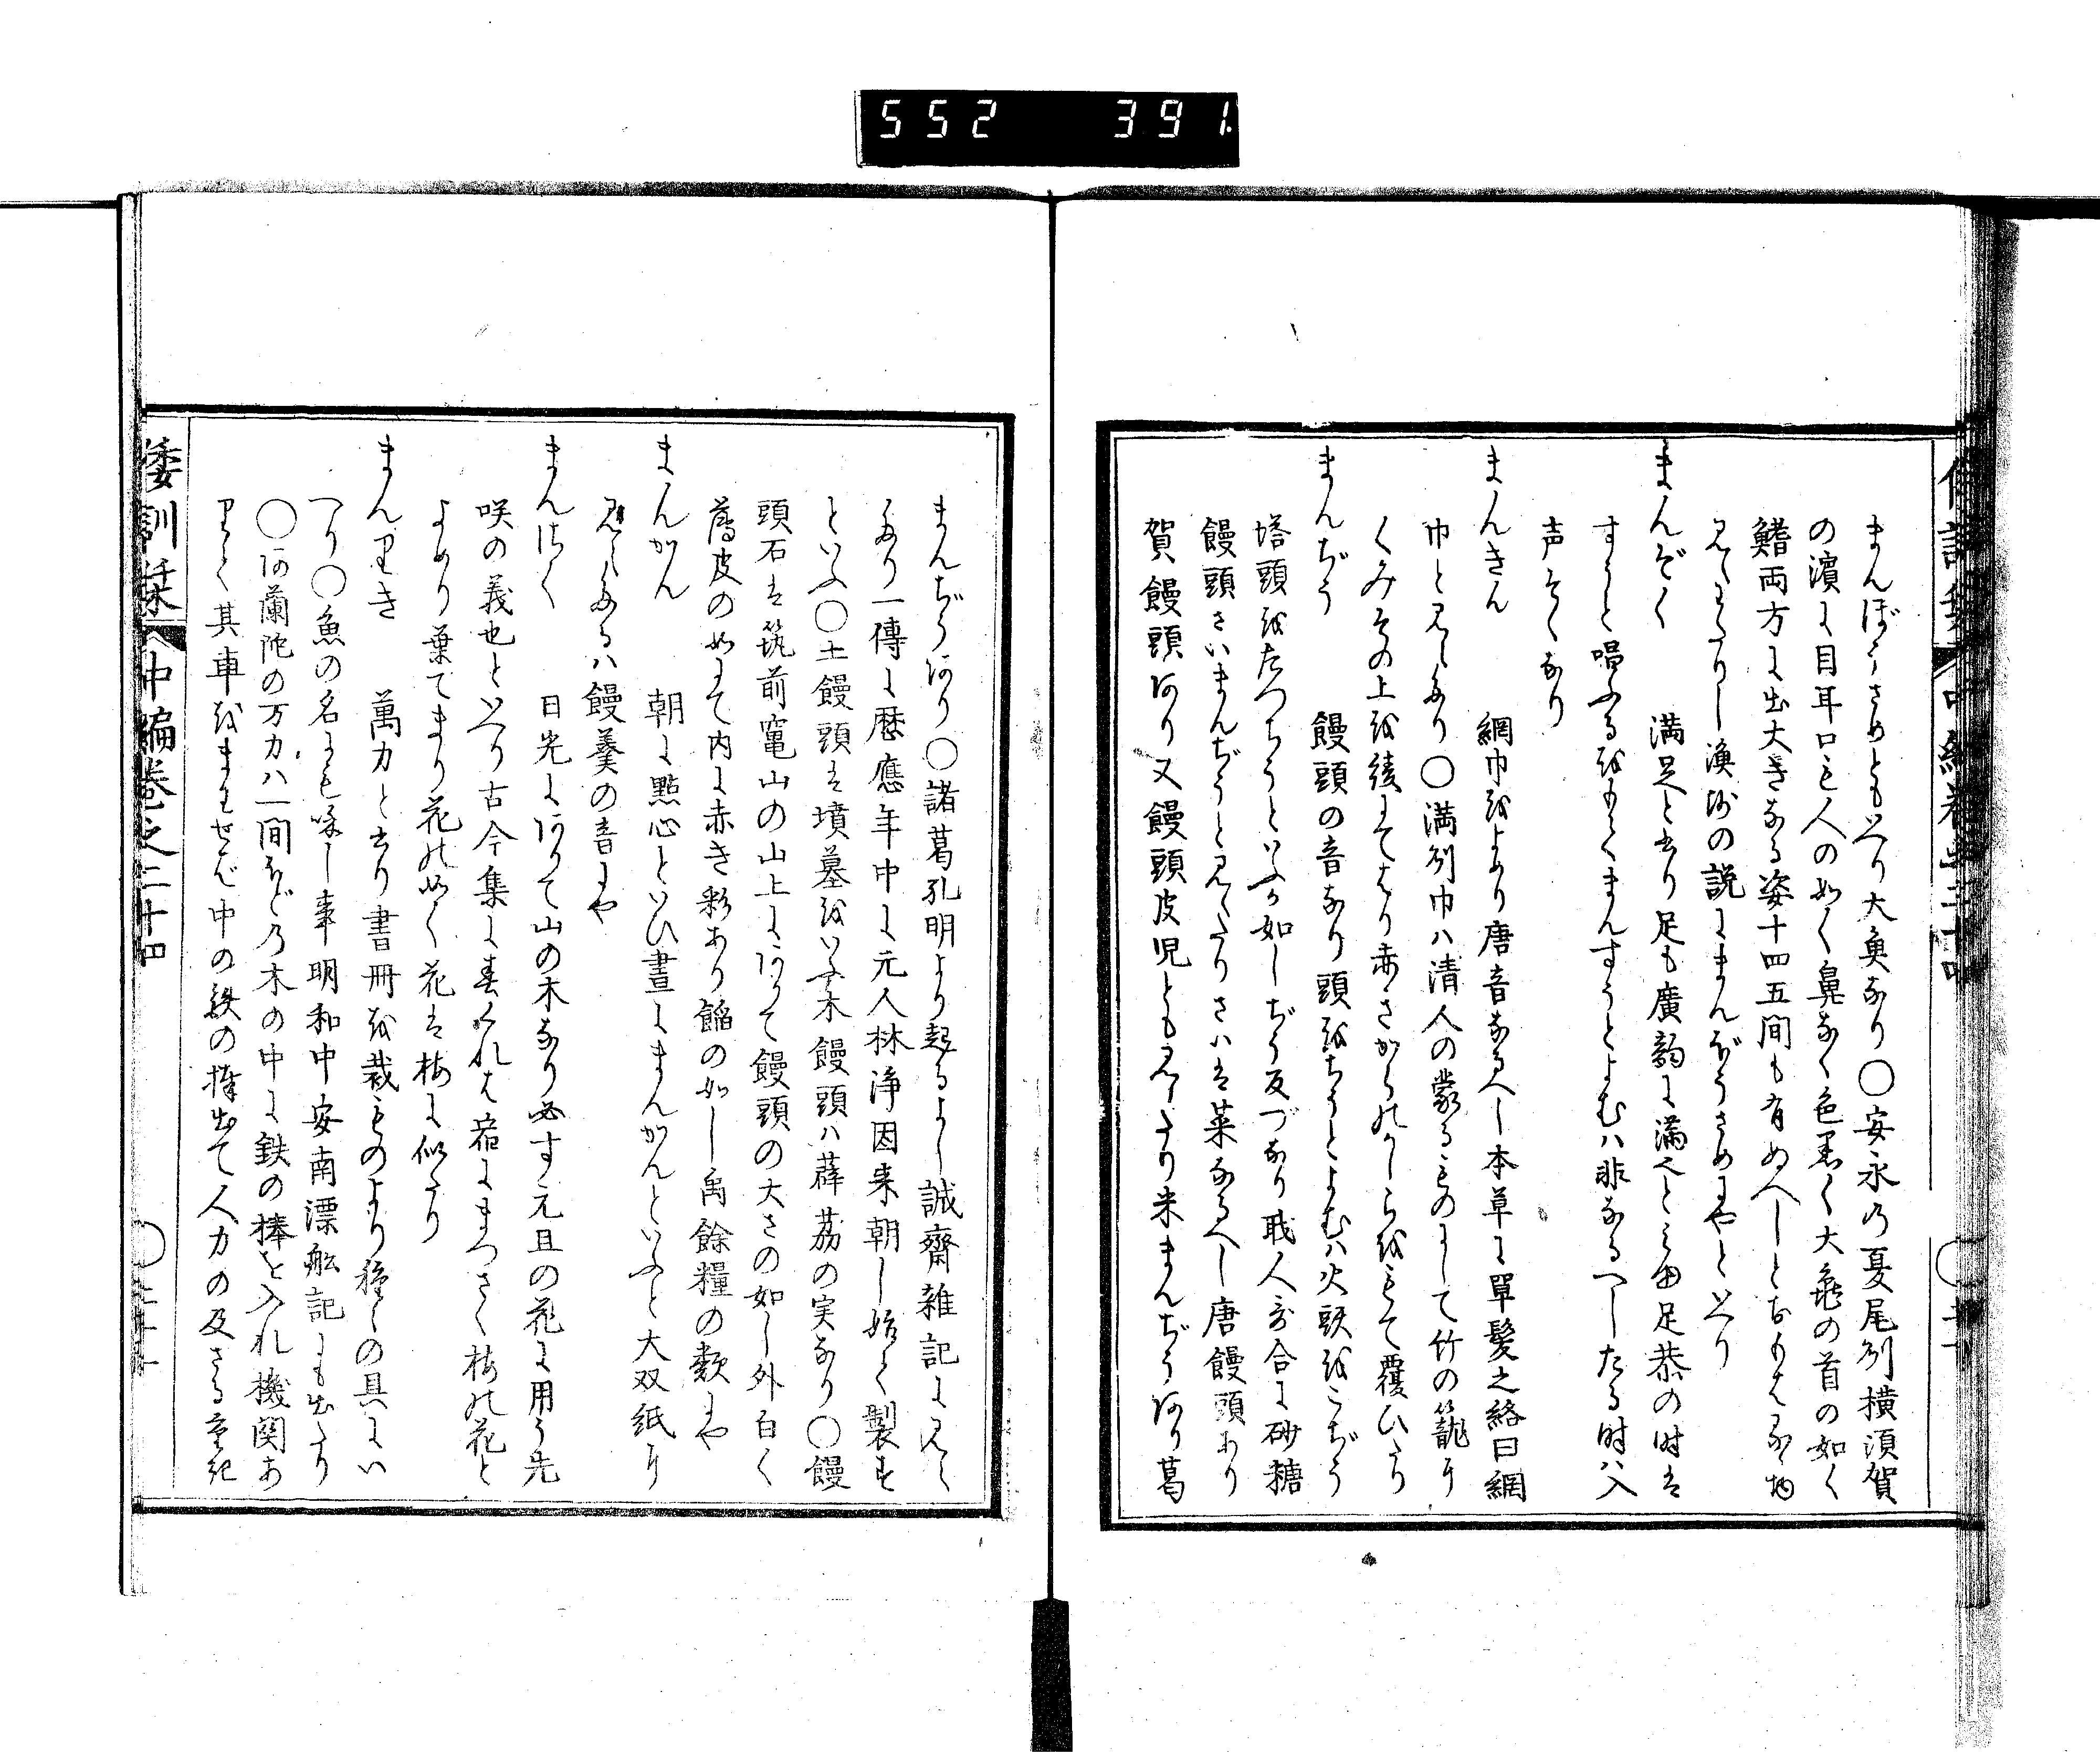 552 391
まんぼうさめともいへり大魚なり〇安永の夏尾刕横須賀
の濱に目耳口も人の如く鼻なく色黒く大亀の首の如く
鰭両方に出大きなる姿十四五間も有ぬへしとおもはるゝ物
見えわたりし漁師の説にまんぼうさめにやといへり
まんぞく 満足と書り足も廣韵に滿也とみゆ足恭の時は
すうと唱ふるをもてまんすうとよむハ非なるへしたる時ハ入
声そくなり
まんきん 網巾をよめり唐音なるへし本草に單髪之絡曰網
巾と見えたり〇満刕巾ハ清人の蒙るものにして竹の籠に
くみその上を綾にてはり赤さがらのかしらをもて覆ひたり
まんぢう 饅頭の音なり頭をちうとよむハ火頭をこぢう
塔頭をたつちうといふか如しぢう反づなり職人歌合に砂糖
饅頭さいまんぢうと見えたりさいは菜なるへし唐饅頭あり
賀饅頭あり又饅頭皮児とも見えたり米まんぢうあり葛
まんぢうあり〇諸葛孔明より起るよし誠齋雜記に見え
たり一傳に暦應年中に元人林浄因来朝し始て製す
といふ〇土饅頭は墳墓をいふ木饅頭ハ薜茘の実なり〇饅
頭石は筑前竃山の山上にありて饅頭の大さの如し外白く
薄皮の如にて内に赤き粉あり餡の如し禹餘糧の類にや
まんがん 朝に點心といひ晝にまんがんといふと大双紙に
見えたるハ饅羹の音にや
まんさく 日光にありて山の木なり必す元旦の花に用う先
咲の義也といへり古今集に春されは宿にまつさく梅の花と
よめり葉てまり花の如く花は梅に似たり
まんりき 萬力と書り書冊を裁ものより種々の具にい
へり〇魚の名にも味し事明和中安南漂舩記にも出たり
〇阿蘭陀の万力ハ一間ほどの木の中に鉄の棒を入れ機関あ
りて其車をまわせば中の鉄の擇出て人力の及さる重き
倭訓栞 中編巻之二十四